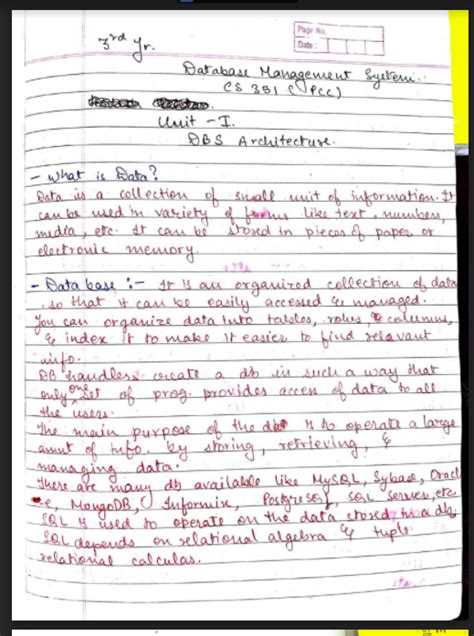 Page No.
Date:
3rd Yr.
Database Management System :
CS 351 ( PCC)
Unit - I.
DBS Architecture.
- What is Data?
Data is a collection of small unit of information. It
can be used in variety of forms like text, numbers,
media, etc. It can be stored in pieces of paper or
electronic memory.
- Database :- It is an organized collection of data
, so that it can be easily accessed & managed.
You can organize data into tables, rows, columns,
& index it to make it easier to find relavant
info.
DB handlers create a db in such a way that
only one set of prog. provides access of data to all
the users.
The main purpose of the db is to operate a large
amnt of info. by storing, retrieving, &
managing data.
There are many db available like MySQL, Sybase, Oracl
-e, MongoDB, Informix, PostgreSQL, SQL Server, etc.
SQL is used to operate on the data stored in a db.
SQL depends on relational algebra & tuple
relational calculas.